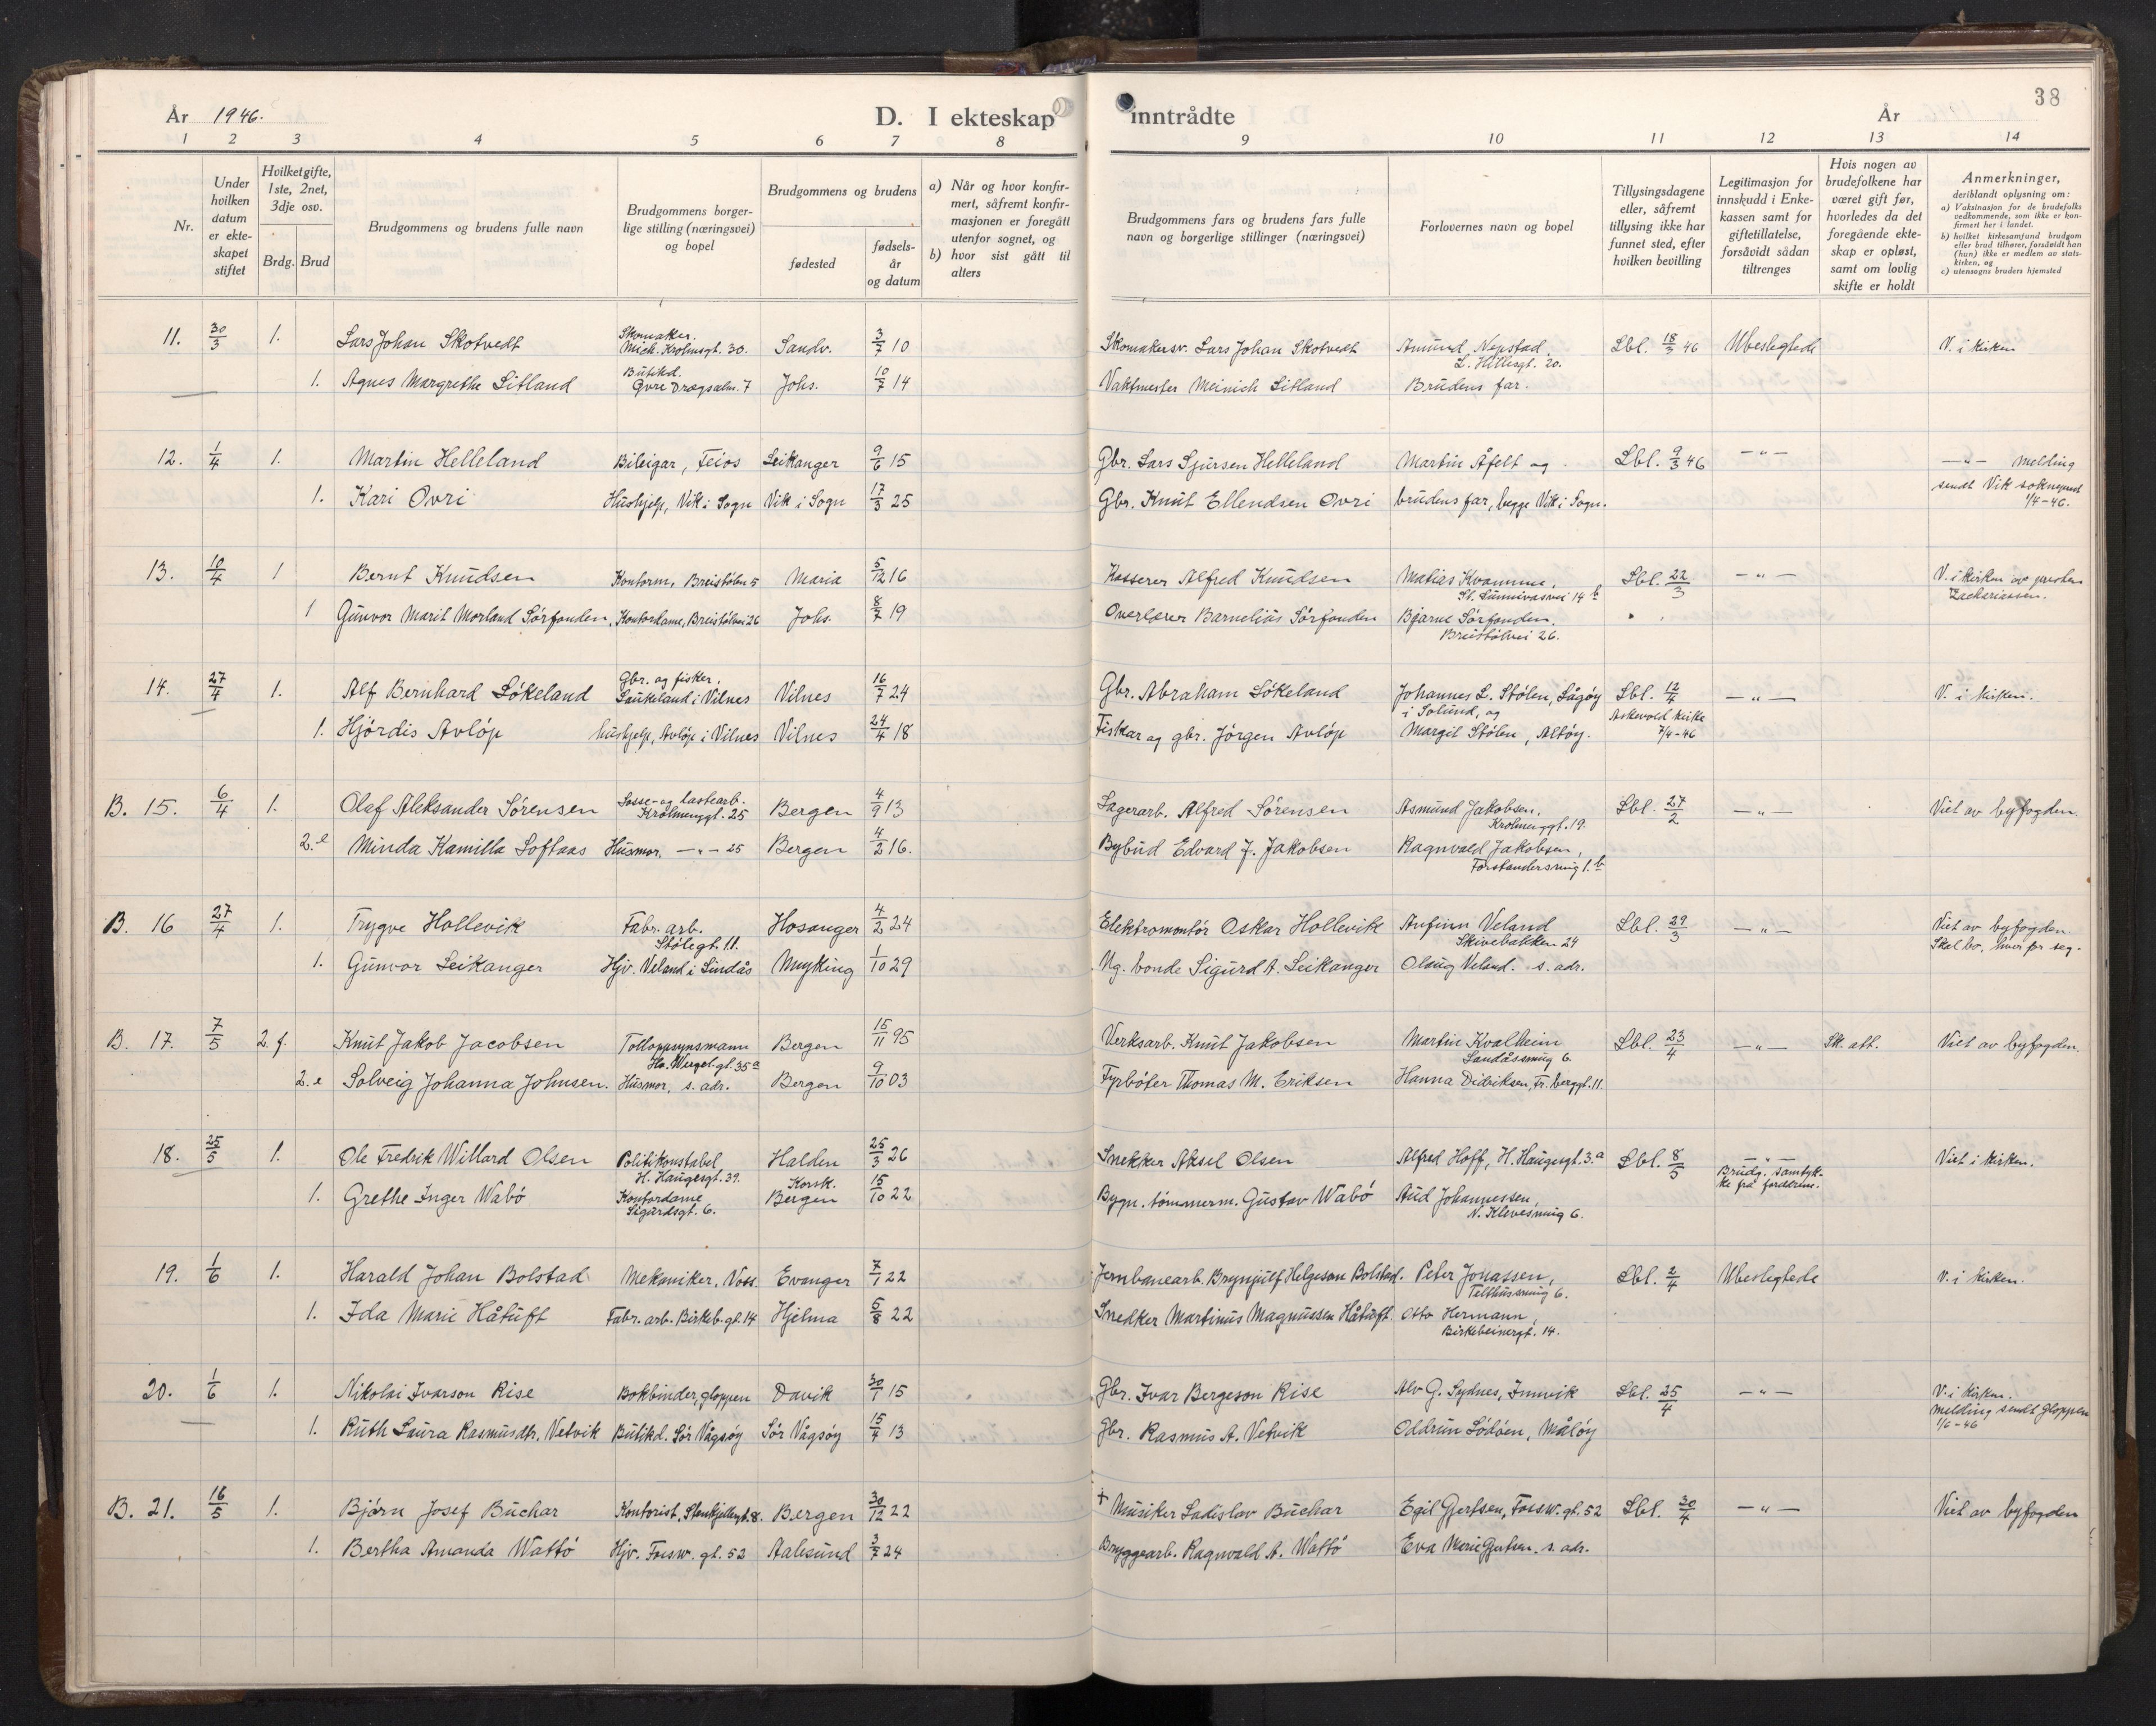 38
År 1946.
D. I ekteskap inntrådte
År
1 2 3 4 5 6 7 8 9 10 11 12 13 14
Nr.
Under hvilken datum er ekte-skapet stiftet
Hvilket gifte, 1ste, 2net, 3dje osv.
Brdg. Brud
Brudgommens og brudens fulle navn
Brudgommens borger-lige stilling (næringsvei) og bopel
Brudgommens og brudens
fødested
fødsels-år og datum
a) Når og hvor konfir-mert, såfremt konfir-masjonen er foregått utenfor sognet, og
b) hvor sist gått til alters
Brudgommens fars og brudens fars fulle navn og borgerlige stillinger (næringsvei)
Forlovernes navn og bopel
Tillysingsdagene eller, såfremt tillysing ikke har funnet sted, efter hvilken bevilling
Legitimasjon for innskudd i Enke-kassen samt for giftetillatelse, forsåvidt sådan tiltrenges
Hvis nogen av brudefolkene har været gift før, hvorledes da det foregående ekte-skap er opløst, samt om lovlig skifte er holdt
Anmerkninger,
deriblandt oplysning om:
a) Vaksinasjon for de brudefolks vedkommende, som ikke er kon-firmert her i landet.
b) hvilket kirkesamfund brudgom eller brud tilhører, forsåvidt han (hun) ikke er medlem av stats-kirken, og
c) utensogns bruders hjemsted
11. 30/3 1. Lars Johan Skotvedt Skomaker. Mich. Krohnsgt. 30. Sandv. 3/7 10 Skomakersv. Lars Johan Skotvedt Amund Nepstad, L. Hillesgt. 20. Lbl. 18/3 46 Ubeslegtede V. i kirken
1. Agnes Margrethe Litland Butikd. Øvre Dragsalm. 7 Johs. 10/7 14 Vaktmester Meinich Litland Brudens far.
12. 1/4 1. Martin Helleland Bileigar, Feios Leikanger 9/6 15 Gbr. Lars Sjursen Helleland Martin Åfelt og Lbl. 9/3 46 — " — — " — melding
1. Kari Ovri Hushjelp, Vik i Sogn Vik i Sogn 17/3 25 Gbr. Knut Ellendsen Ovri brudens far, begge Vik i Sogn. sendt Vik sokneprest 1/4-46.
13. 10/4 1 Bernt Knudsen Kontorm, Breistølsv 5 Maria 5/12 16 Kasserer Alfred Knudsen Matias Kvamme, St. Sunnivasvei 14 b Lbl. 22/3 — " — V. i kirken av presten Zachariassen.
1 Gunvor Marit Morland Sørfonden, Kontordame, Breistølvei 26 Johs. 8/7 19 Overlærer Barnelius Sørfonden Bjarne Sørfonden. Breistølvei 26.
14. 27/4 1. Alf Bernhard Løkeland Gbr. og fisker. Laukeland i Vilnes Vilnes 16/7 24 Gbr. Abraham Løkeland Johannes L. Stølen, Lågøy i Solund, og Lbl. 12/4 — " — V. i kirken.
1. Hjørdis Avløp hushjelp, Avløp i Vilnes Vilnes 24/4 18 Fiskar og gbr. Jørgen Avløp Margit Stølen, Altøy. Askvold kirke 7/4-46
B. 15. 6/4 1. Olaf Aleksander Sørensen Losse- og lastearb. Krohnenggt. 25 Bergen 4/9 13 Lagerarb. Alfred Sørensen Asmund Jakobsen, Krohnenggt. 19. Lbl. 27/2 — " — Viet av byfogden.
2. e Minda Kamilla Loftaas Husmor, — " — 25 Bergen 4/2 16. Bybud Edvard J. Jakobsen Ragnvald Jakobsen, Forstandersmug 1. b
B. 16 27/4 1. Trygve Hollevik Fabr. arb. Stølegt. 11. Hosanger 4/2 24 Elektromontør Oskar Hollevik Anfinn Veland Skivebakken 24 Lbl. 29/3 — " — Viet av byfogden.
Skal bo, hver for seg.
1. Gunvor Leikanger Hjv. Veland i Lindås Myking 1/10 29 Ng. bonde Sigurd A. Leikanger Olaug Veland. s. adr.
B. 17. 7/5 2. f. Knut Jakob Jacobsen Tolloppsynsmann Ho. Wergel. gt. 35 a Bergen 15/11 95 Verksarb. Knut Jakobsen Martin Kvalheim Sandåssmug 6. Lbl. 23/4 — " — Sk. att. Viet av byfogden.
2. e Solveig Johanna Johnsen. Husmor, s. adr. Bergen 9/10 03 Fyrbøter Thomas M. Eriksen Hanna Didriksen, Fr. berggt. 11.
18. 25/5 1. Ole Fredrik Willard Olsen Politikonstabel H. Haugesgt. 39. Halden 25/3 26 Snekker Aksel Olsen Alfred Hoff, H. Haugesgt. 3. a Lbl. 8/5 — " — Brudg. samtyk-ke fra foreldrene. Viet i kirken.
1. Grethe Inger Wabø Kontordame Sigurdsgt. 6. Korsk. Bergen 15/10 22 Bygn. tømmerm. Gustav Wabø Aud Johannessen, N. Klevesmug 6.
19. 1/6 1. Harald Johan Bolstad Mekaniker, Voss. Evanger 7/1 22 Jernbanearb. Brynjulf Helgeson Bolstad. Peter Jonassen, Telthussmug 6. Lbl. 2/4 Ubeslegtede V. i kirken.
1. Ida Marie Håtuft Fabr. arb. Birkeb. gt. 14 Hjelma 5/8 22 Snedker Martinus Magnussen Håtuft. Otto Hermann, Birkebeinergt. 14.
20. 1/6 1. Nikolai Ivarson Rise Bokbinder, gloppen Davik 30/1 15 Gbr. Ivar Bergeson Rise Alv G. Sydnes, Innvik Lbl. 25/4 — " — V. i kirken.
melding sendt Gloppen 1/6-46
1. Ruth Laura Rasmusdtr. Vetvik Butikd. Sør Vågsøy Sør Vågsøy 15/4 13 Gbr. Rasmus A. Vetvik Oddrun Lødøen, Måløy
B. 21. 16/5 1. Bjørn Josef Buchar Kontorist, Stenkjellergt. 8. Bergen 30/12 22 + Musiker Ladislav Buchar Egil Gjertsen, Fossw. gt. 52 Lbl. 30/4 — " — Viet av byfogden
1. Bertha Amanda Wattø Hjv. Fossw. gt. 52 Aalesund 3/7 24 Bryggearb. Ragnvald A. Wattø Eva Marie Gjertsen. s. adr.